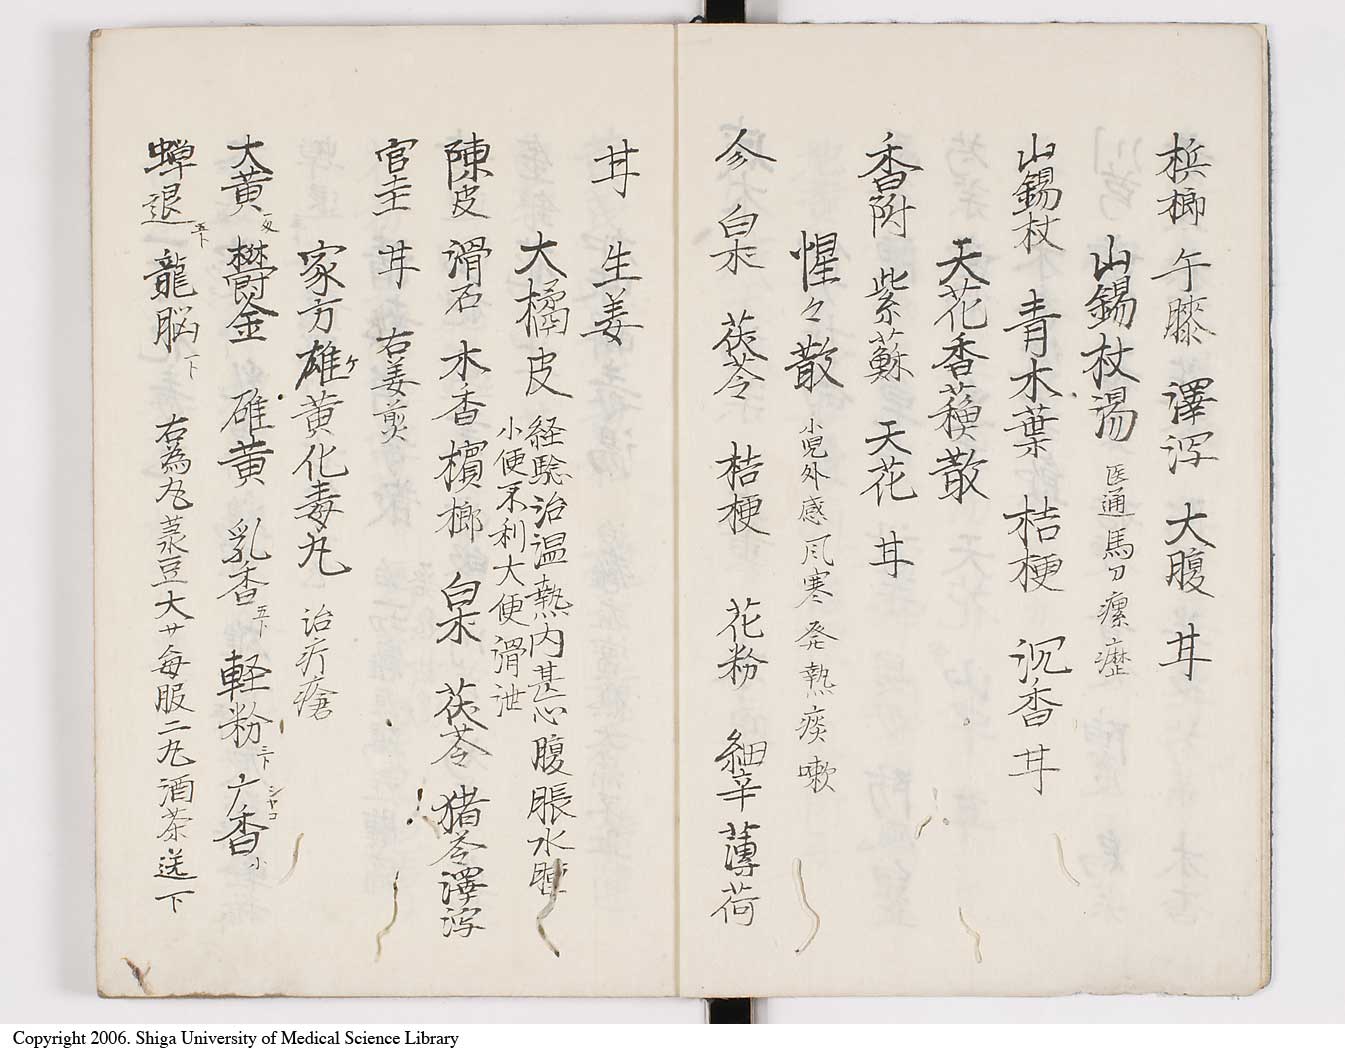 檳榔 午膝 澤泻 大腹 甘
山錫杖湯 医通馬刀瘰癧
山錫杖 青木葉 桔梗 沉香 甘
天花香薷散
香附 紫蘇 天花 甘
惺々散 小児外感風寒発熱痰嗽
参 白朮 茯苓 桔梗 花粉 細辛 薄荷
甘 生姜
大橘皮 経験治温熱内甚心腹脹水腫
小便不利大便滑泄
陳皮 滑石 木香 檳榔 白朮 茯苓 猪苓 澤泻
官圭 甘 右姜煎
家方雄黄化毒丸 治疔瘡
大黄 欝金 雄黄 乳香五下 軽粉三下 广香シャコ小
蝉退五下 龍脳下 右為丸菉豆大廿毎服二丸酒茶送下
Copyright 2006. Shiga University of Medical Science Library